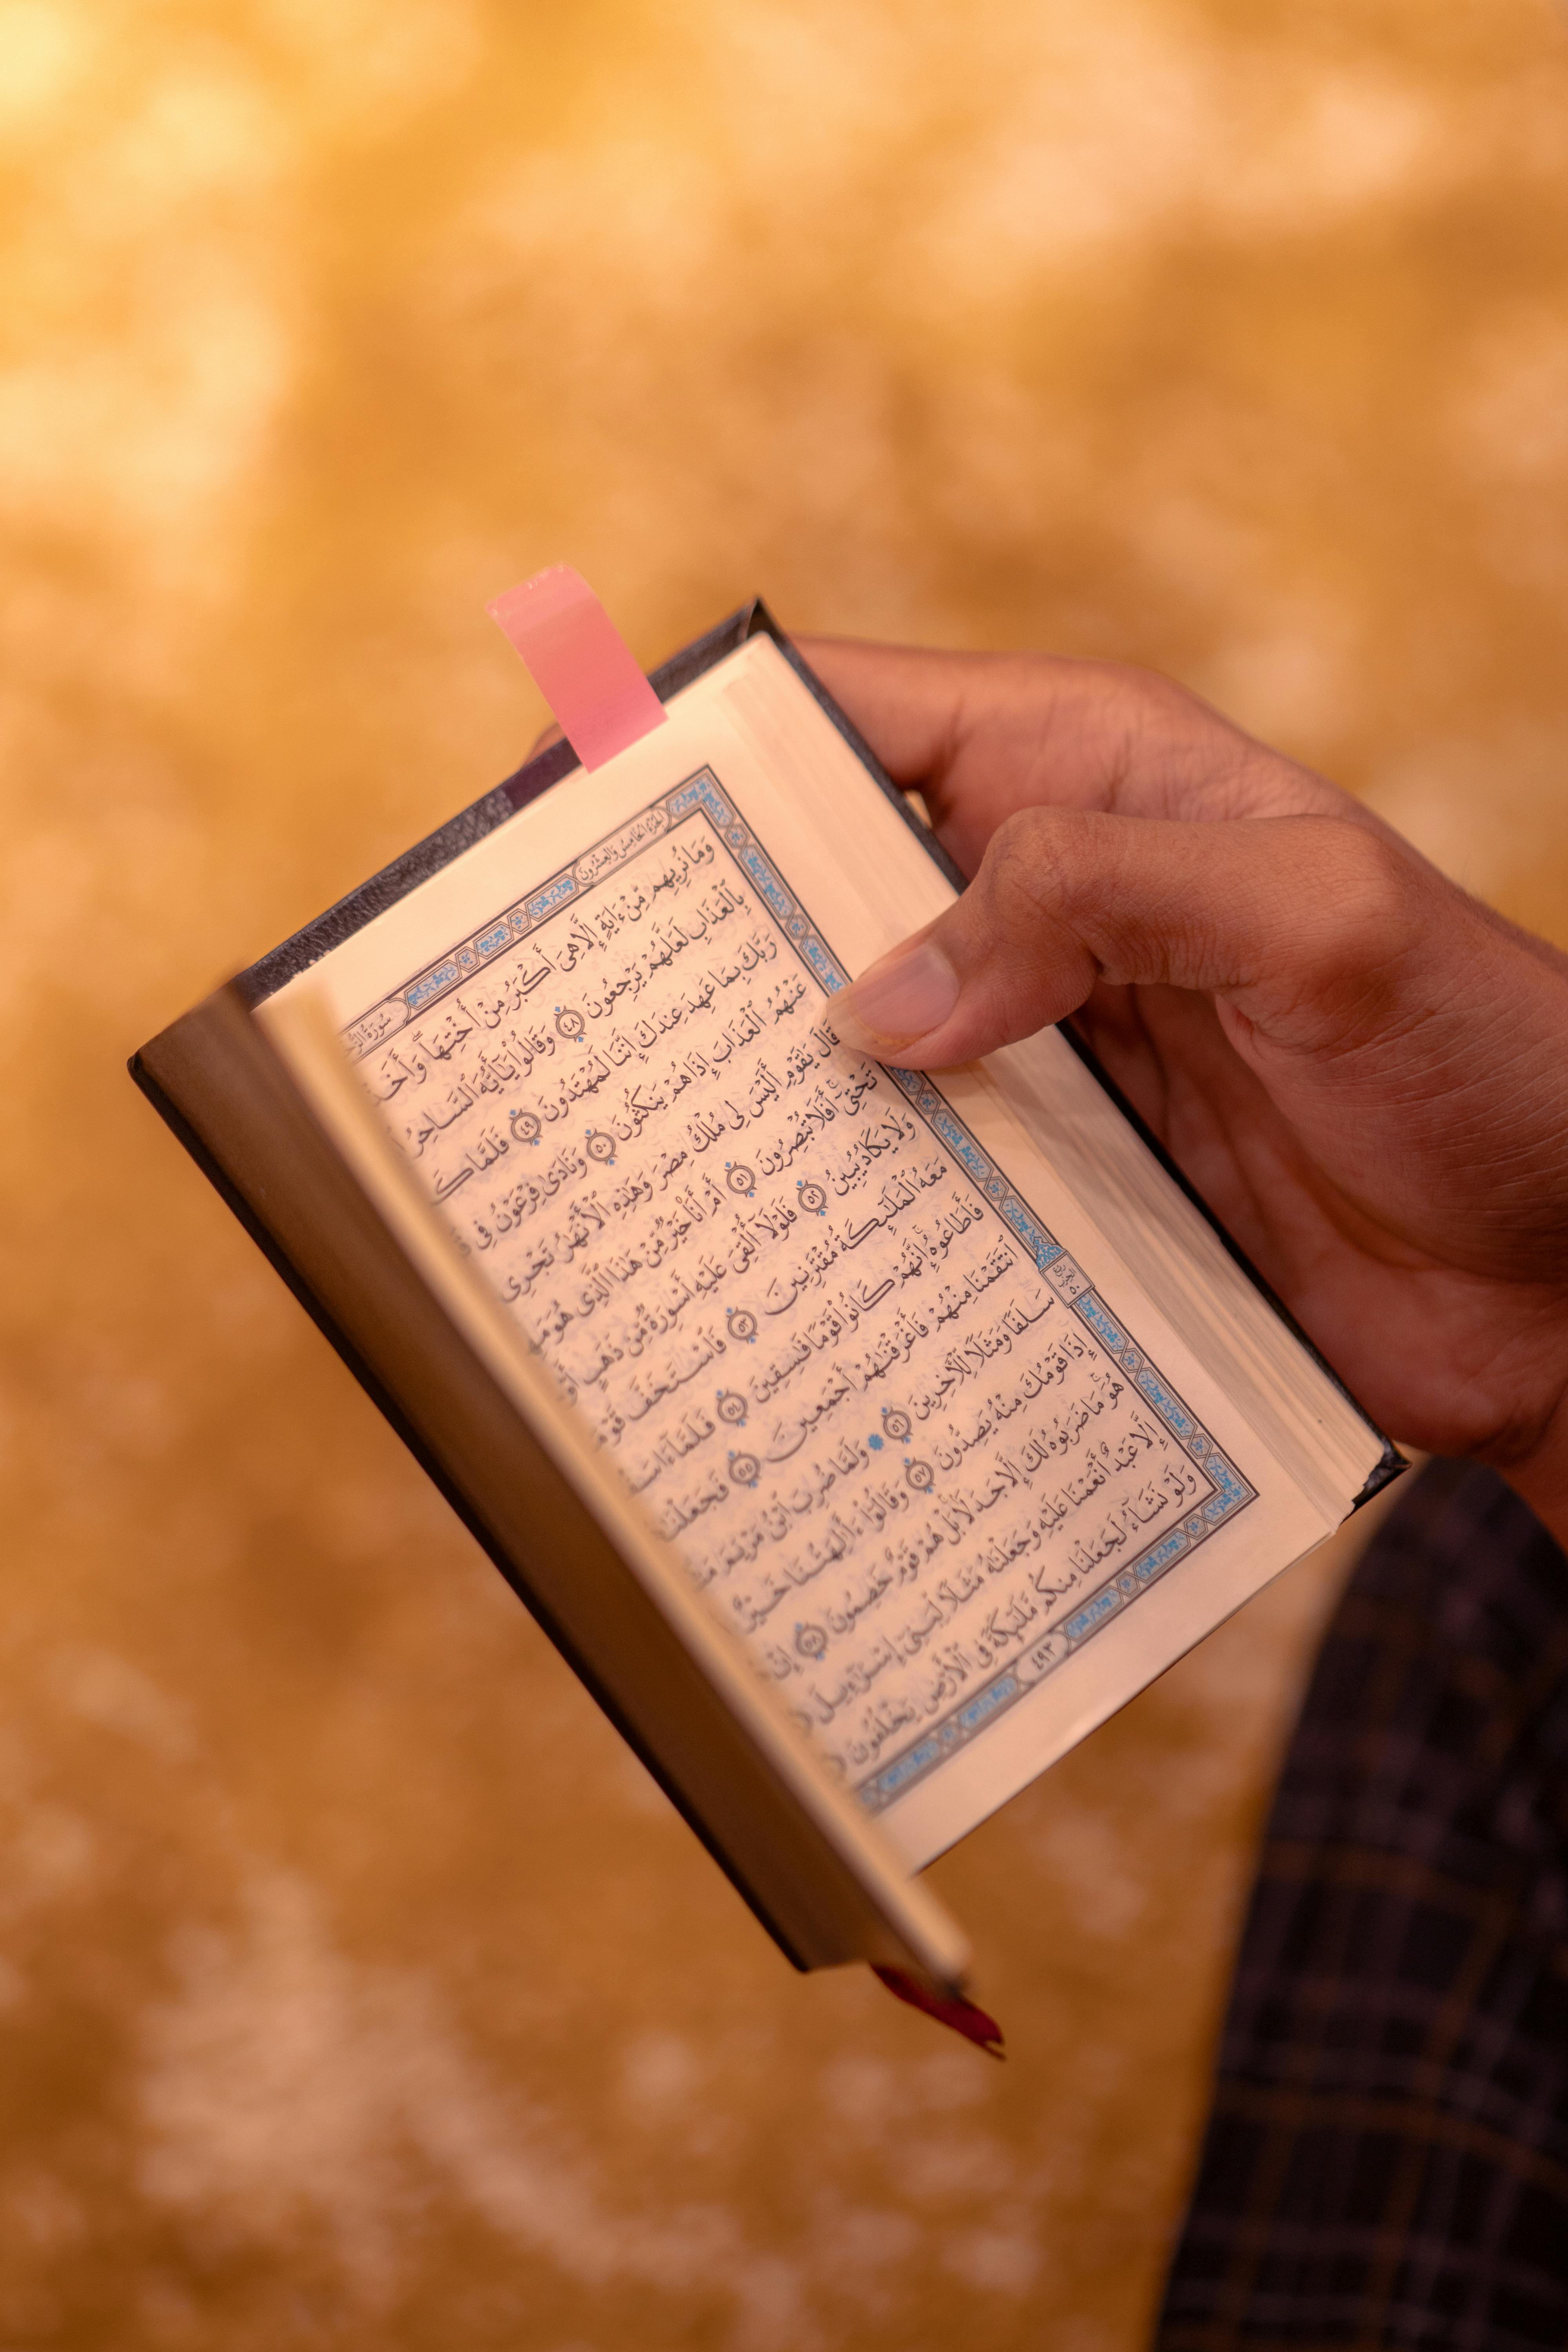 الجزء الخامس والعشرون
سورة
وَمَا نُرِيهِم مِّنْ ءَايَةٍ إِلَّا هِيَ أَكْبَرُ مِنْ أُخْتِهَا ۖ
بِٱلْعَذَابِ لَعَلَّهُمْ يَرْجِعُونَ ٤٨ وَقَالُوا۟ يَٰٓأَيُّهَ ٱلسَّاحِرُ
رَبَّكَ بِمَا عَهِدَ عِندَكَ إِنَّنَا لَمُهْتَدُونَ ٤٩ فَلَمَّا
عَنْهُمُ ٱلْعَذَابَ إِذَا هُمْ يَنكُثُونَ ٥٠ وَنَادَىٰ فِرْعَوْنُ فِى
قَالَ يَٰقَوْمِ أَلَيْسَ لِى مُلْكُ مِصْرَ وَهَٰذِهِ ٱلْأَنْهَٰرُ تَجْرِى
تَحْتِىٓ ۖ أَفَلَا تُبْصِرُونَ ٥١ أَمْ أَنَا۠ خَيْرٌ مِّنْ هَٰذَا ٱلَّذِى هُوَ
وَلَا يَكَادُ يُبِينُ ٥٢ فَلَوْلَآ أُلْقِىَ عَلَيْهِ أَسْوِرَةٌ مِّن ذَهَبٍ أَوْ
مَعَهُ ٱلْمَلَٰٓئِكَةُ مُقْتَرِنِينَ ٥٣ فَٱسْتَخَفَّ
فَأَطَاعُوهُ ۚ إِنَّهُمْ كَانُوا۟ قَوْمًا فَٰسِقِينَ ٥٤ فَلَمَّآ
ٱنتَقَمْنَا مِنْهُمْ فَأَغْرَقْنَٰهُمْ أَجْمَعِينَ ٥٥
سَلَفًا وَمَثَلًا لِّلْءَاخِرِينَ ٥٦ وَلَمَّا ضُرِبَ ٱبْنُ مَرْيَمَ
إِذَا قَوْمُكَ مِنْهُ يَصِدُّونَ ٥٧ وَقَالُوٓا۟ ءَأَٰلِهَتُنَا خَيْرٌ
هُوَ ۚ مَا ضَرَبُوهُ لَكَ إِلَّا جَدَلًۢا ۚ بَلْ هُمْ قَوْمٌ خَصِمُونَ ٥٨
إِلَّا عَبْدٌ أَنْعَمْنَا عَلَيْهِ وَجَعَلْنَٰهُ مَثَلًا لِّبَنِىٓ إِسْرَٰٓءِيلَ
وَلَوْ نَشَآءُ لَجَعَلْنَا مِنكُم مَّلَٰٓئِكَةً فِى ٱلْأَرْضِ يَخْلُفُونَ
ربع
الحزب
٥٠
٤٩٣